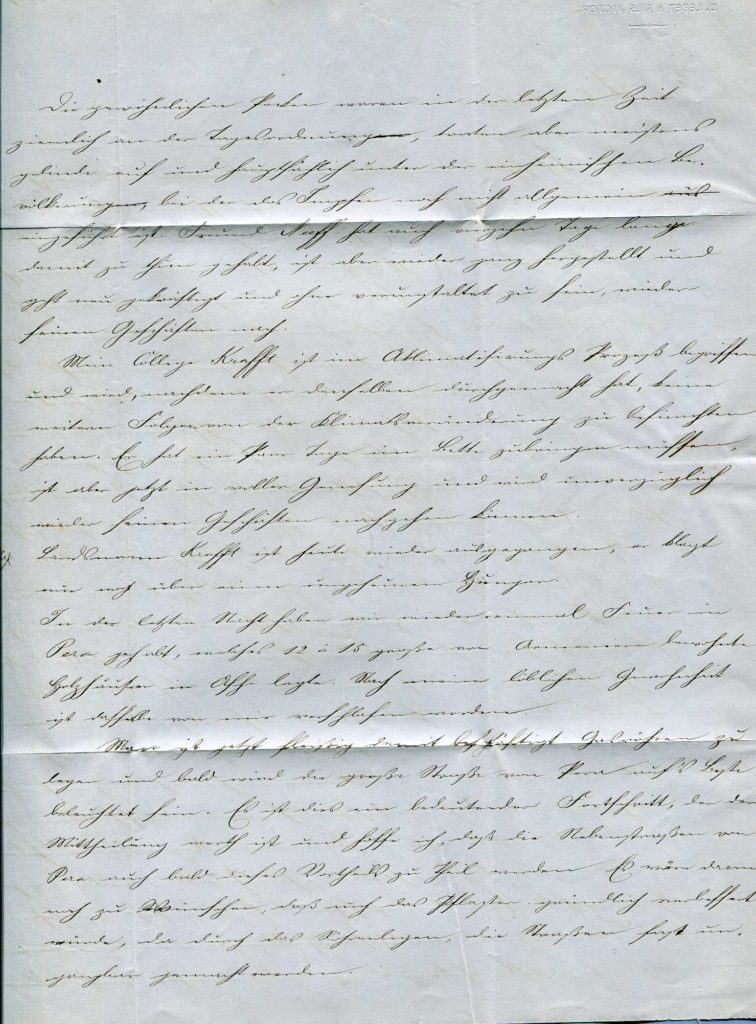 D. LEBET & FILS, VICTOR
Die gewöhnlichen Pocken waren in der letzten Zeit
ziemlich an der Tagesordnung, traten aber meistens
gelinde auf und hauptsächlich unter der einheimischen Be-
völkerung, bei der das Impfen noch nicht allgemein aus
eingeführt ist. Freund hat auch vierzehn Tage lang
damit zu thun gehabt, ist aber wieder ganz hergestellt und
geht neu gekräftigt und ohne verunstaltet zu sein, wieder
seinen Geschäften nach.
Mein College Krafft ist im Aklimatisirungs Prozeß begriffen
und wird, nachdem er denselben durchgemacht hat, keine
weitern Folgen von der Klimaveränderung zu befürchten
haben. Er hat ein Paar Tage im Bette zubringen müssen,
ist aber jetzt in voller Genesung und wird unverzüglich
wieder seinen Geschäften nachgehen können.
Landsmann Krafft ist heute wieder ausgegangen, er klagt
nur noch über einen ungeheuren Hunger.
In der letzten Nacht haben wir wieder einmal Feuer in
Pera gehabt, welches 12 à 15 große von Armeniern bewohnte
Holzhäuser in Asche legte. Nach meiner löblichen Gewohnheit
ist dasselbe von mir verschlafen worden.
Man ist jetzt fleißig damit beschäftigt Gasröhren zu
legen und bald wird die große Straße von Pera auf's Beste
beleuchtet sein. Es ist dies ein bedeutender Fortschritt, der der
Mittheilung werth ist und hoffe ich, daß die Nebenstraßen von
Pera auch bald dieses Vortheils zu Theil werden. Es wäre dann
noch zu wünschen, daß auch das Pflaster gründlich verbessert
würde, da durch das Röhrenlegen, die Straßen fast un-
gangbar gemacht werden.